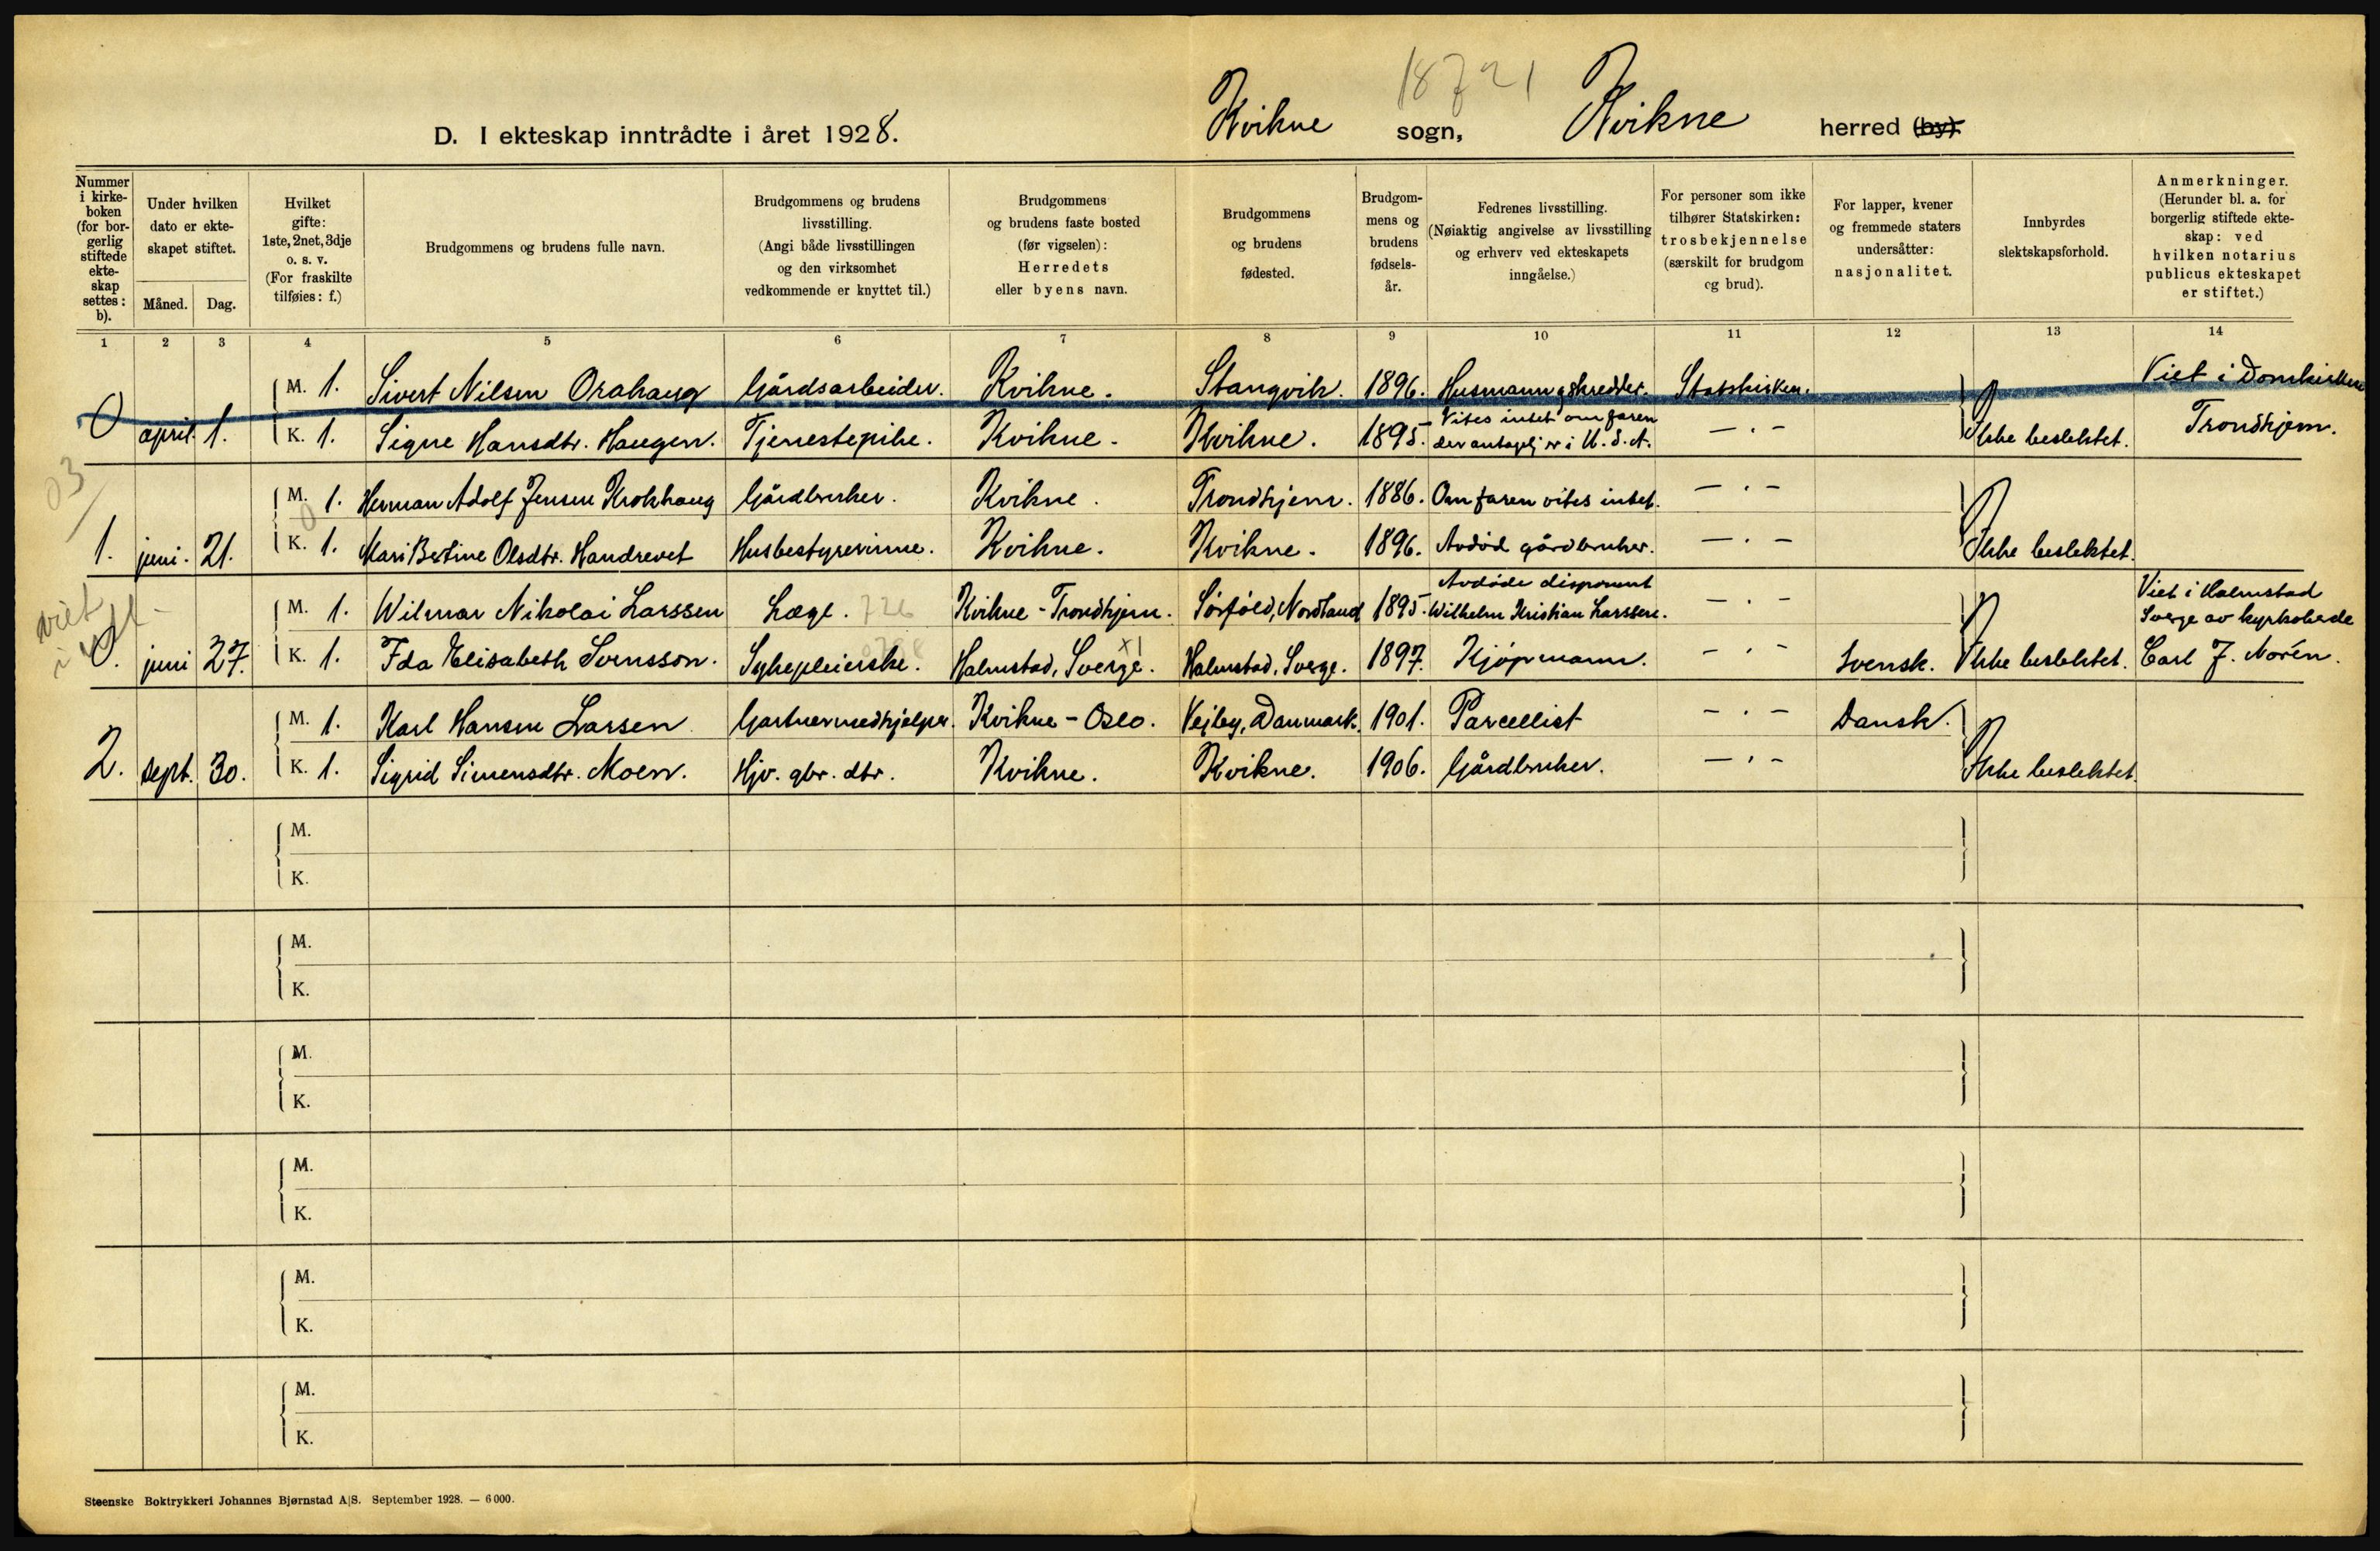 18721
D. I ekteskap inntrådte i året 1928. Kvikne sogn, Kvikne herred (by).
Nummer i kirkeboken (for borgerlig stiftede ekteskap settes: b).
Under hvilken dato er ekteskapet stiftet.
Måned. Dag.
Hvilket gifte: 1ste, 2net, 3dje o. s. v. (For fraskilte tilføies: f.)
Brudgommens og brudens fulle navn.
Brudgommens og brudens livsstilling. (Angi både livsstillingen og den virksomhet vedkommende er knyttet til.)
Brudgommens og brudens faste bosted (før vigselen): Herredets eller byens navn.
Brudgommens og brudens fødested.
Brudgommens og brudens fødselsår.
Fedrenes livsstilling. (Nøiaktig angivelse av livsstilling og erhverv ved ekteskapets inngåelse.)
For personer som ikke tilhører Statskirken: trosbekjennelse (særskilt for brudgom og brud).
For lapper, kvener og fremmede staters undersåtter: nasjonalitet.
Innbyrdes slektskapsforhold.
Anmerkninger. (Herunder bl. a. for borgerlig stiftede ekteskap: ved hvilken notarius publicus ekteskapet er stiftet.)
1 2 3 4 5 6 7 8 9 10 11 12 13 14
M. 1. Sivert Nilsen Orahaug Gårdsarbeider. Kvikne. Stangvik. 1896. Husmann og skredder. Statskirken. Viet i Domkirken
0 april. 1. K. 1. Signe Hansdtr. Haugen. Tjenestepike. Kvikne. Kvikne. 1895. Vites intet om faren der antagelig er i U.S.A. — . — Ikke beslektet. Trondhjem.
03
M. 1. Herman Adolf Jensen Krokhaug Gårdbruker. Kvikne. Trondhjem. 1886. Om faren vites intet. — . —
1. juni. 21. K. 1. Mari Bertine Olsdtr. Handrevet Husbestyrerinne. Kvikne. Kvikne. 1896. Avdød gårdbruker. — . — Ikke beslektet.
viet i
M. 1. Wilmar Nikolai Larssen Læge. 726 Kvikne - Trondhjem. Sørfold, Nordland 1895. Avdøde disponent Wilhelm Kristian Larssen. — . — Viet i Halmstad Sverge av kyrkoherde
0. juni 27. K. 1. Ida Elisabeth Svensson. Sykepleierske. Halmstad, Sverge. Halmstad, Sverge. 1897. Kjøpmann. — . — Svensk. Ikke beslektet. Carl J. Norén.
M. 1. Karl Hansen Larsen Gartnermedhjelper. Kvikne - Oslo. Vejby, Danmark. 1901. Parcellist — . — Dansk.
2. sept. 30. K. 1. Sigrid Simensdtr. Moen. Hjv. gbr. dtr. Kvikne. Kvikne. 1906. Gårdbruker. — . — Ikke beslektet.
M.
K.
M.
K.
M.
K.
M.
K.
M.
K.
M.
K.
Steenske Boktrykkeri Johannes Bjørnstad A|S. September 1928. — 6000.